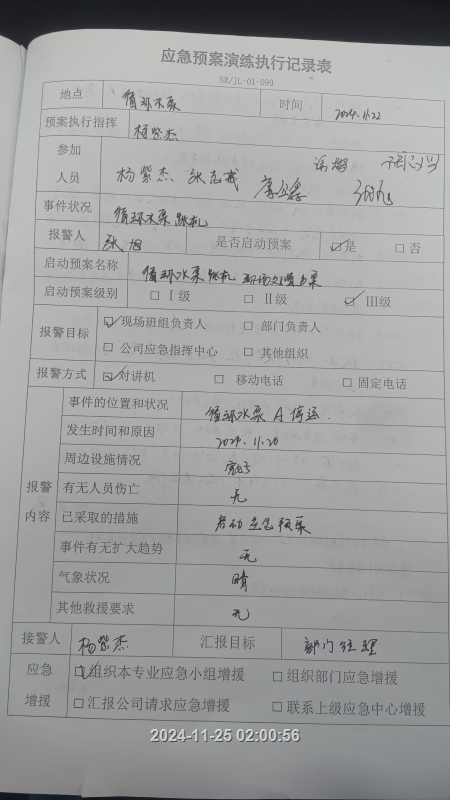 应急预案演练执行记录表
SR/JL-01-099
地点 循环水泵 时间 2024.11.22
预案执行指挥 杨紫杰
参加人员 杨紫杰、张志成
事件状况 循环水泵跳机
报警人 张旭 是否启动预案 ☑是 □否
启动预案名称 循环水泵跳机现场处置方案
启动预案级别 □Ⅰ级 □Ⅱ级 ☑Ⅲ级
报警目标 ☑现场班组负责人 □部门负责人
□公司应急指挥中心 □其他组织
报警方式 ☑对讲机 □移动电话 □固定电话
报警内容
事件的位置和状况 循环水泵A停运.
发生时间和原因 2024.11.20
周边设施情况 完好
有无人员伤亡 无
已采取的措施 启动应急预案
事件有无扩大趋势 无
气象状况 晴
其他救援要求 无
接警人 杨紫杰 汇报目标 部门经理
应急增援 ☑组织本专业应急小组增援 □组织部门应急增援
□汇报公司请求应急增援 □联系上级应急中心增援
2024-11-25 02:00:56